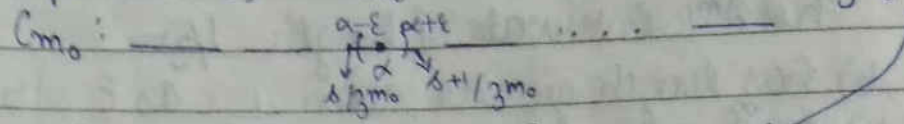 Cm₀ : α-ε α+ε . . . .
α
s/3m₀ s+1/3m₀